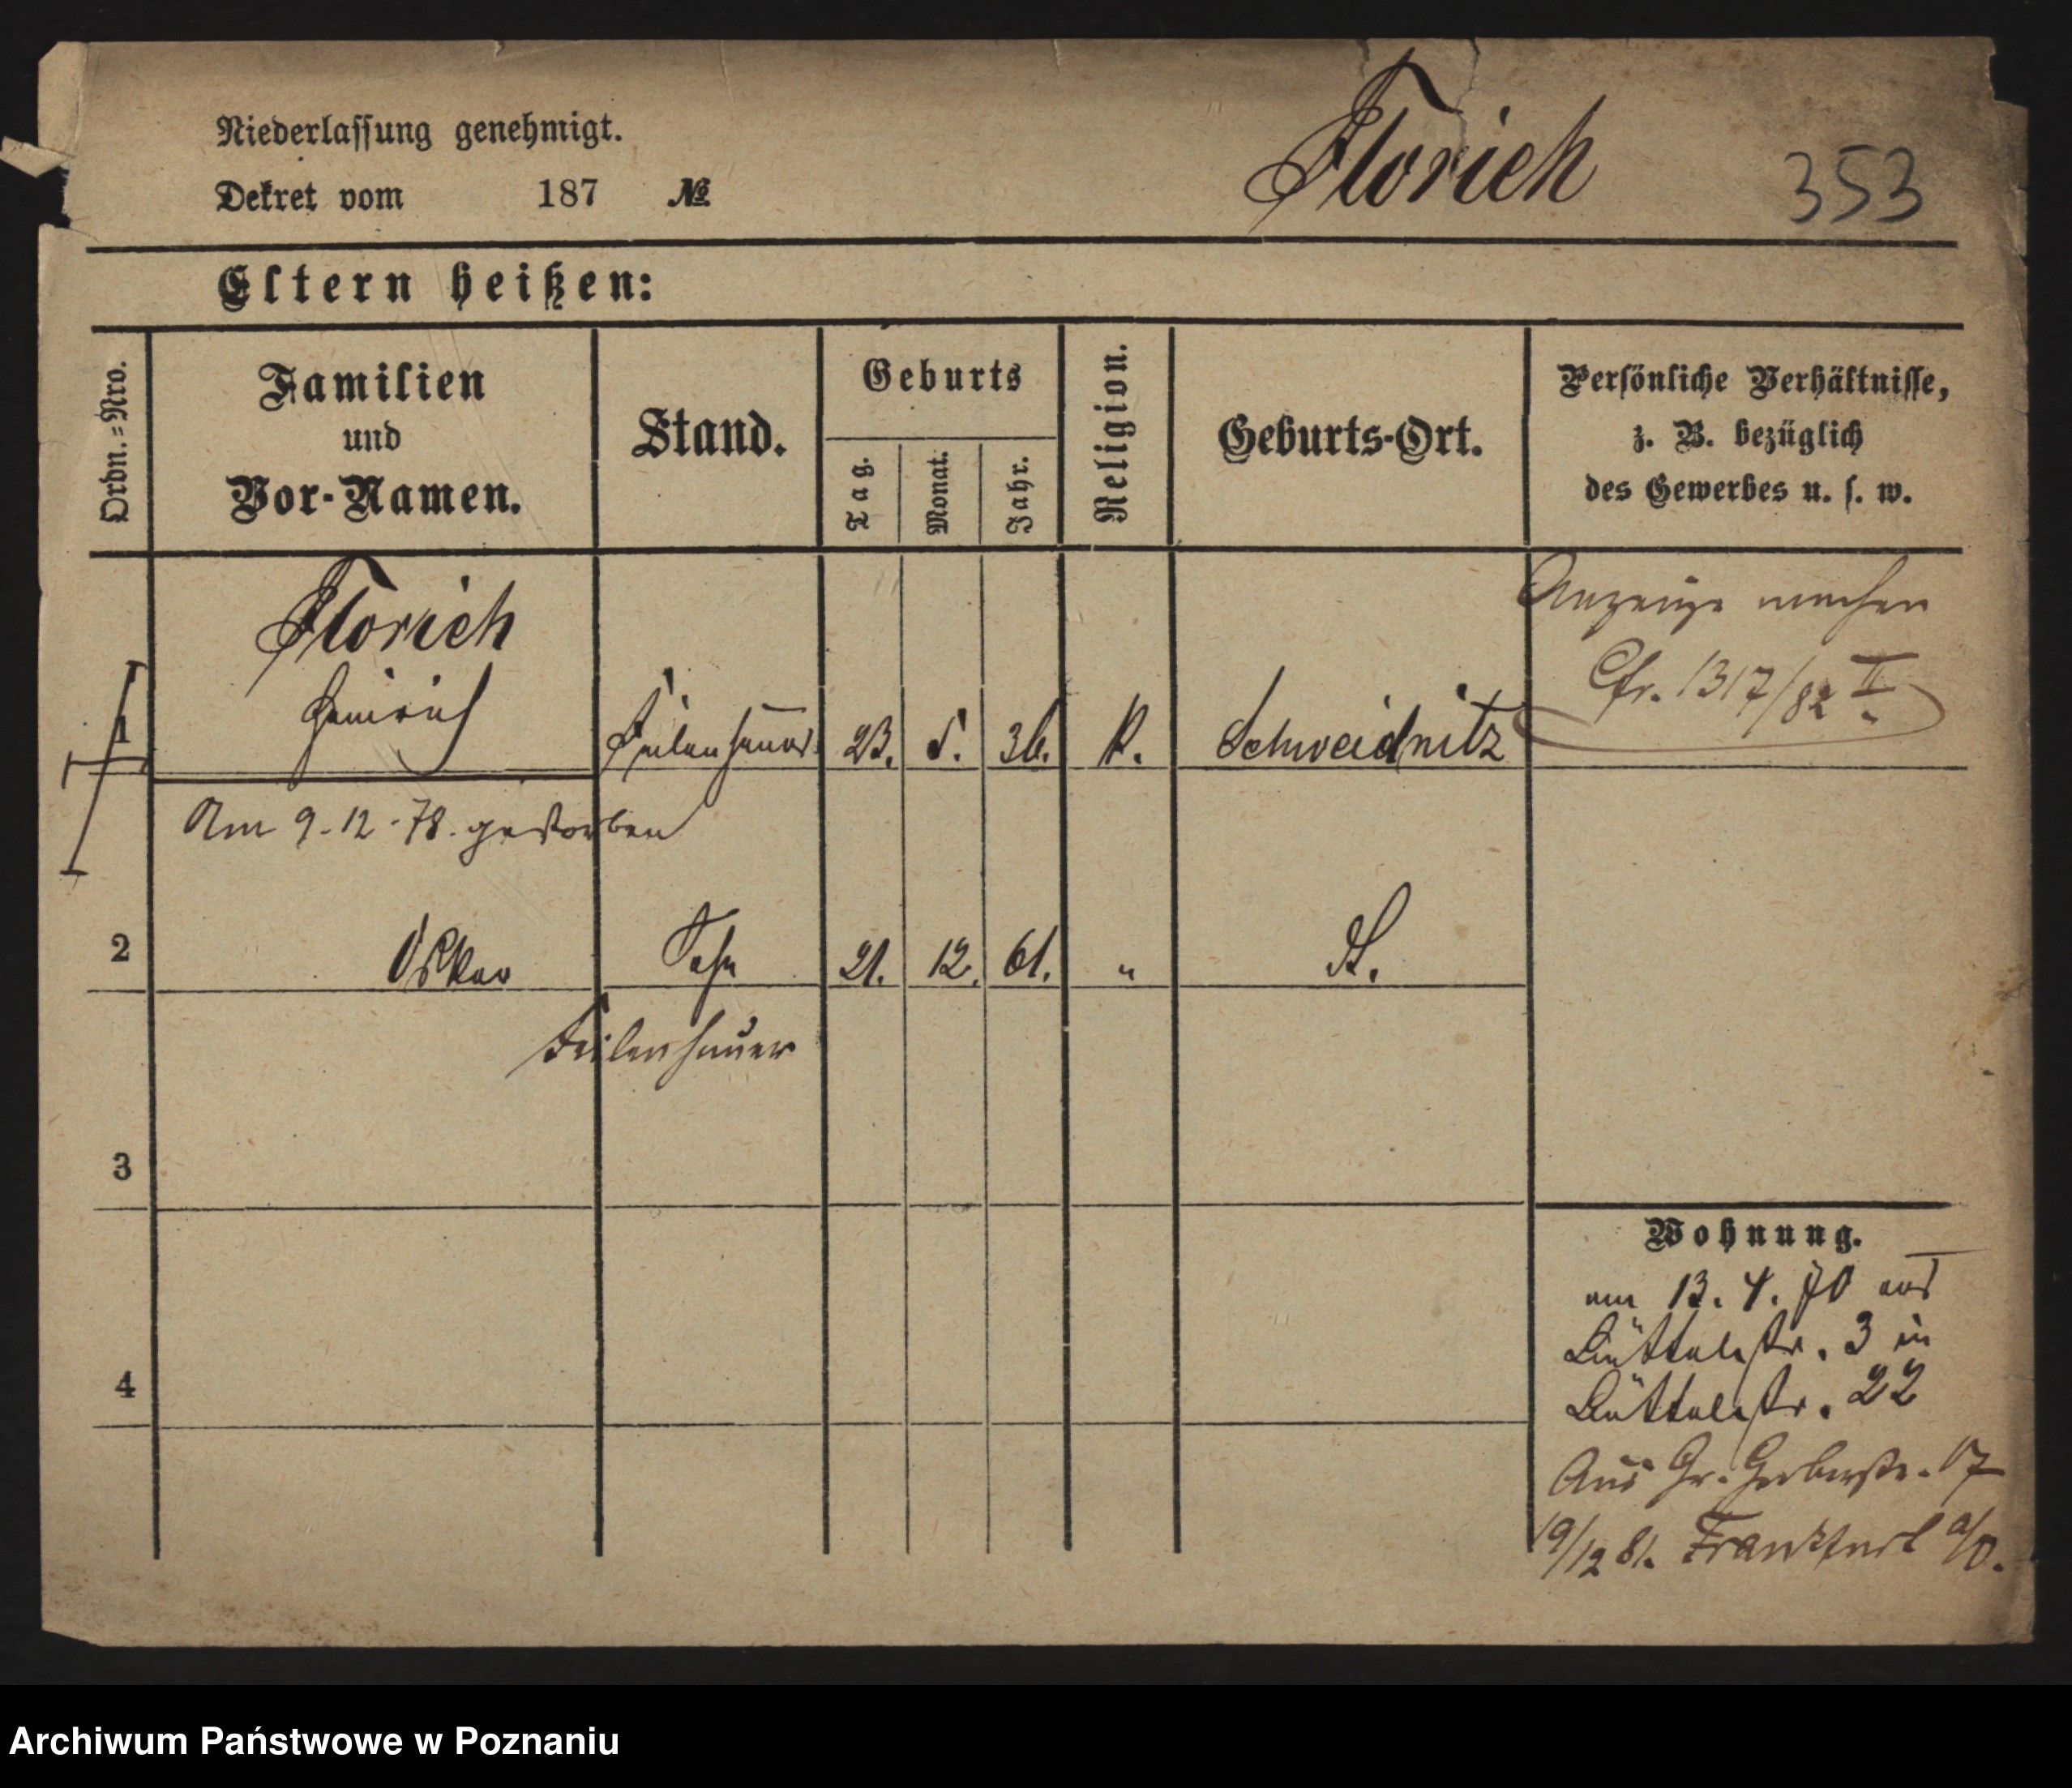 Niederlassung genehmigt.
Dekret vom 187 №
Florich 353
Eltern heißen:
Ordn.=Nro.
Familien
und
Vor-Namen.
Stand.
Geburts
Tag.
Monat.
Jahr.
Religion.
Geburts-Ort.
Persönliche Verhältnisse,
z. B. bezüglich
des Gewerbes u. s. w.
Florich
1 Heinrich Feilenhauer 23. 5. 36. K. Schweidnitz
Anzeige machen
Cfr. 1317/82 II
Am 9.12.78. gestorben
2 Oskar Sohn 21. 12. 61. „
Feilenhauer
3
4
Wohnung.
am 13. 4. 70 aus
Büttelstr. 3 in
Büttelstr. 22
Aus Gr. Gerberstr. 17
19/12 81. Frankfurt a/O.
Archiwum Państwowe w Poznaniu